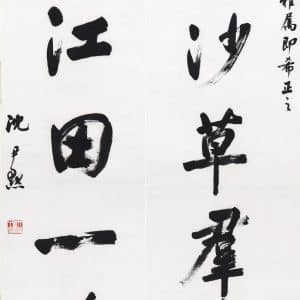 雅属即希正之
沙草羣
江田一
沈尹默